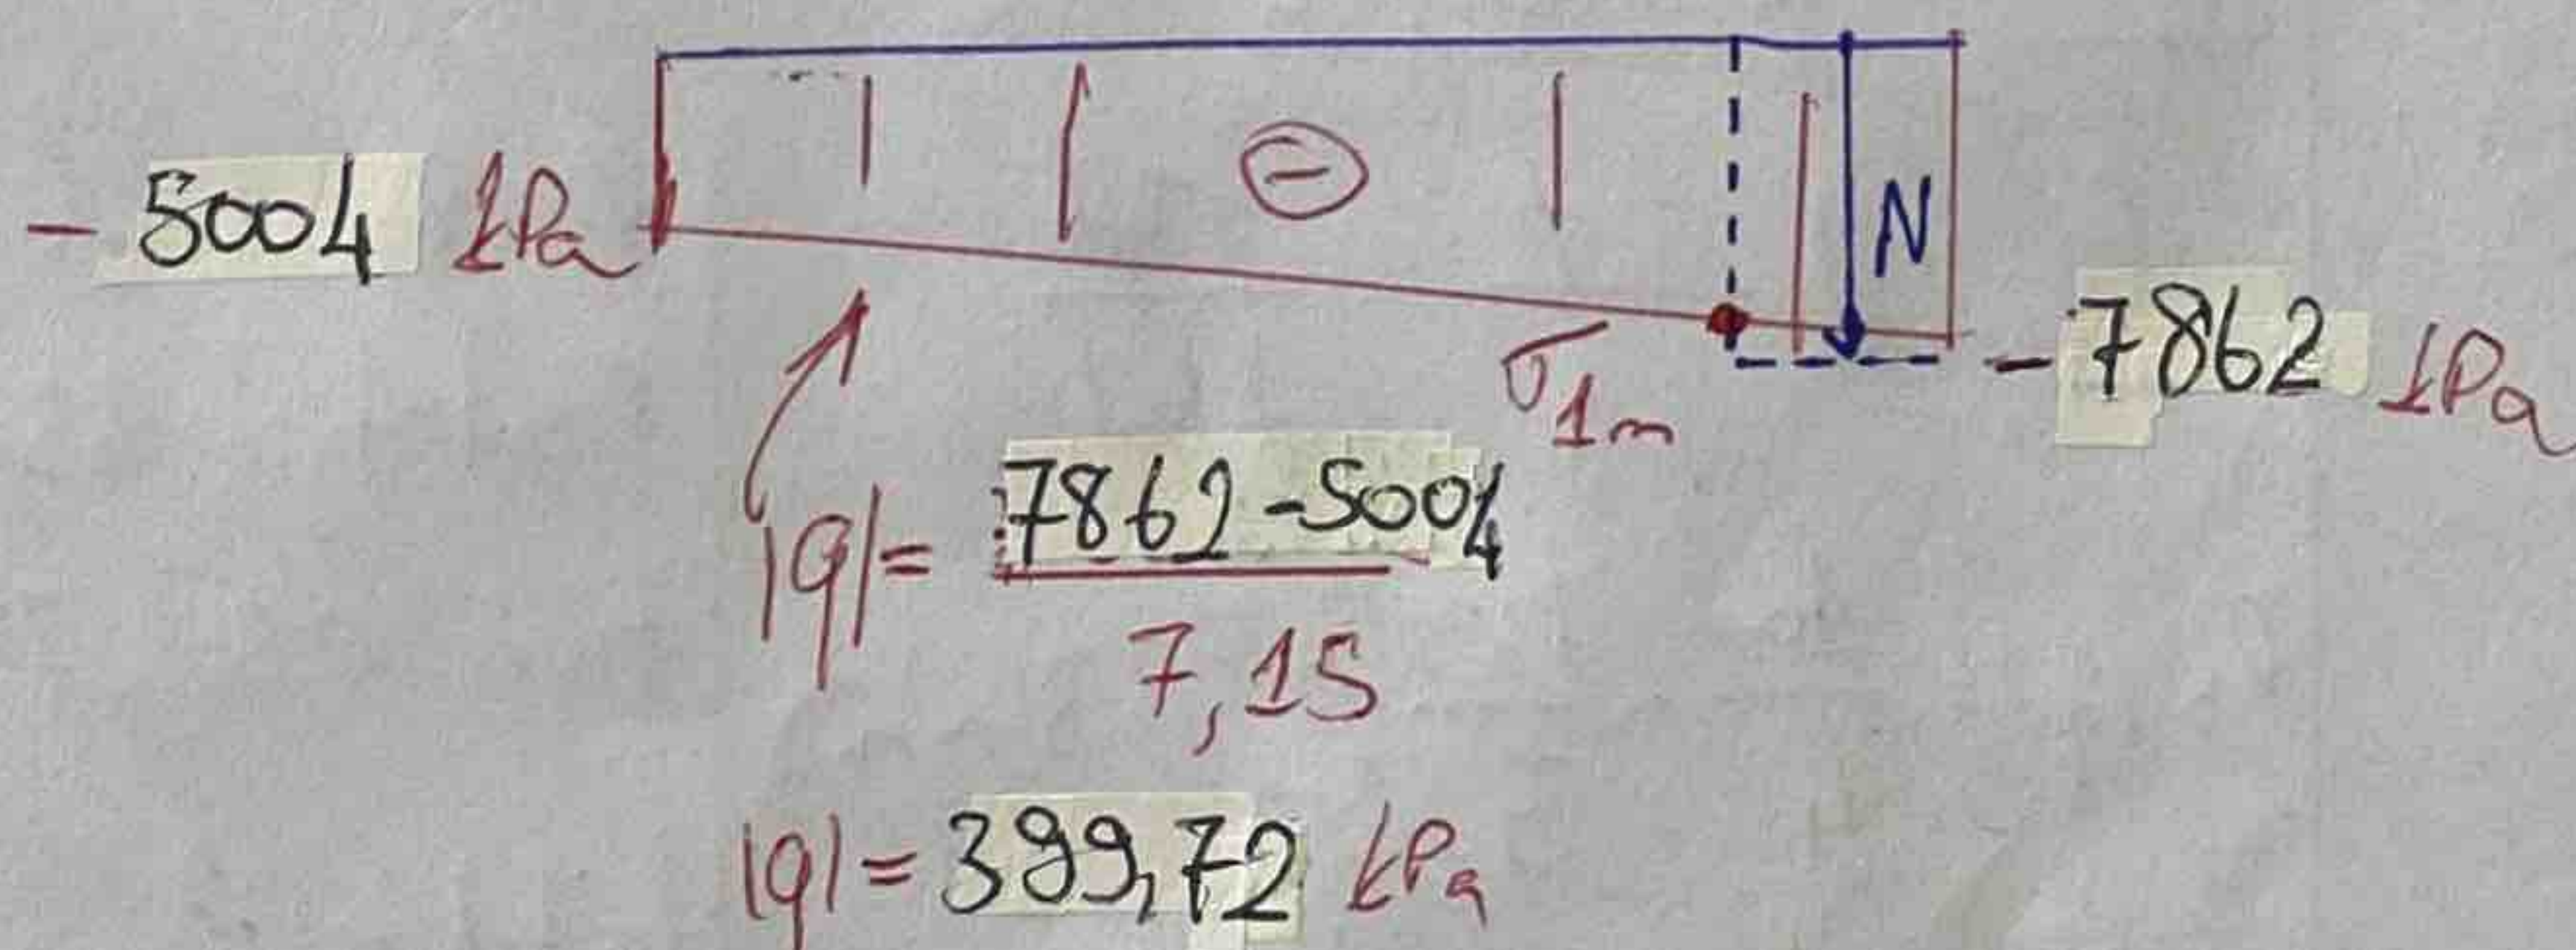 - 5004 kPa
⊖
N
- 7862 kPa
σ1m
|q| = 7862 - 5004
7,15
|q| = 399,72 kPa